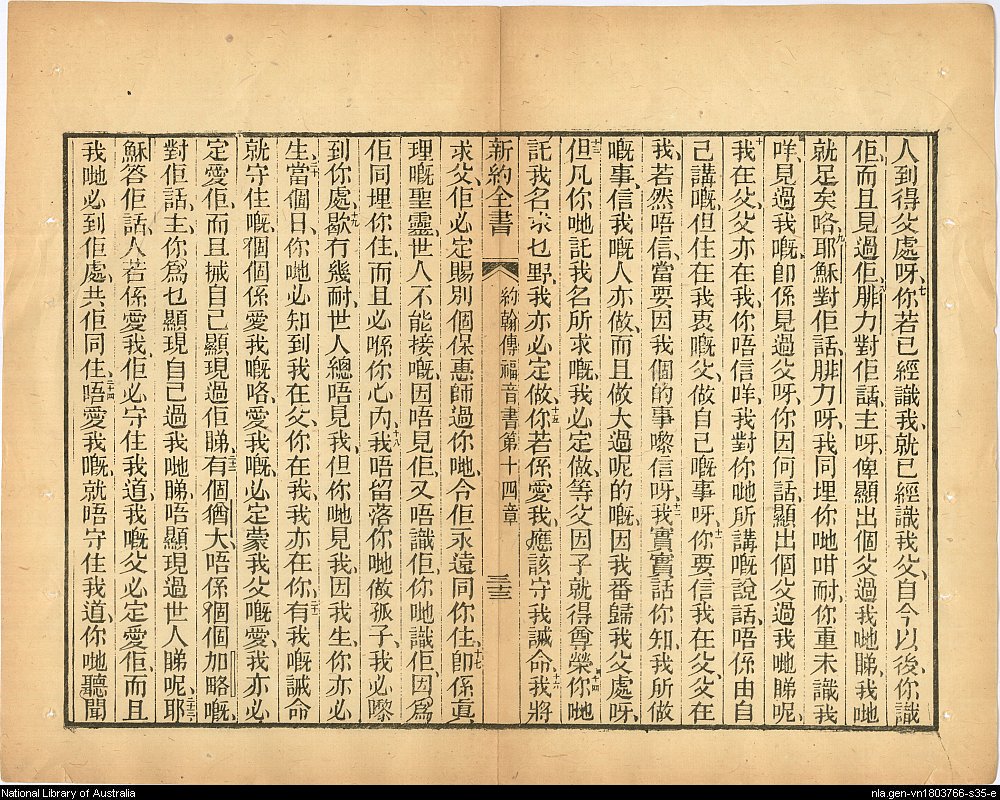 人到得父處呀、七你若已經識我、就已經識我父、自今以後、你識
佢、而且見過佢、八腓力對佢話、主呀、俾顯出個父過我哋睇、我哋
就足矣咯、九耶穌對佢話、腓力呀、我同埋你哋咁耐、你重未識我
咩、見過我嘅、卽係見過父呀、你因何話、顯出個父過我哋睇呢、
十我在父、父亦在我、你唔信咩、我對你哋所講嘅說話、唔係由自
己講嘅、但住在我衷嘅父、做自己嘅事呀、十一你要信我在父、父在
我、若然唔信、當要因我個的事嚟信呀、十二我實實話你知、我所做
嘅事、信我嘅人亦做、而且做大過呢的嘅、因我番歸我父處呀、
十三但凡你哋託我名所求嘅、我必定做、等父因子就得尊榮、十四你哋
託我名求乜野、我亦必定做、十五你若係愛我、應該守我誡命、十六我將
新約全書 約翰傳福音書第十四章 三十三
求父、佢必定賜別個保惠師過你哋、令佢永遠同你住、十七卽係眞
理嘅聖靈、世人不能接嘅、因唔見佢、又唔識佢、你哋識佢、因爲
佢同埋你住、而且必喺你心內、十八我唔留落你哋做孤子、我必嚟
到你處、十九歇冇幾耐、世人總唔見我、但你哋見我、因我生、你亦必
生、二十當個日、你哋必知到我在父、你在我、我亦在你、二一有我嘅誡命
就守住嘅、個個係愛我嘅咯、愛我嘅、必定蒙我父嘅愛、我亦必
定愛佢、而且搣自己顯現過佢睇、二二有個猶大、唔係個個加略嘅、
對佢話、主、你爲乜顯現自己過我哋睇、唔顯現過世人睇呢、二三耶
穌答佢話、人若係愛我、佢必守住我道、我嘅父必定愛佢、而且
我哋必到佢處、共佢同住、二四唔愛我嘅、就唔守住我道、你哋聽聞
National Library of Australia
nla.gen-vn1803766-s35-e